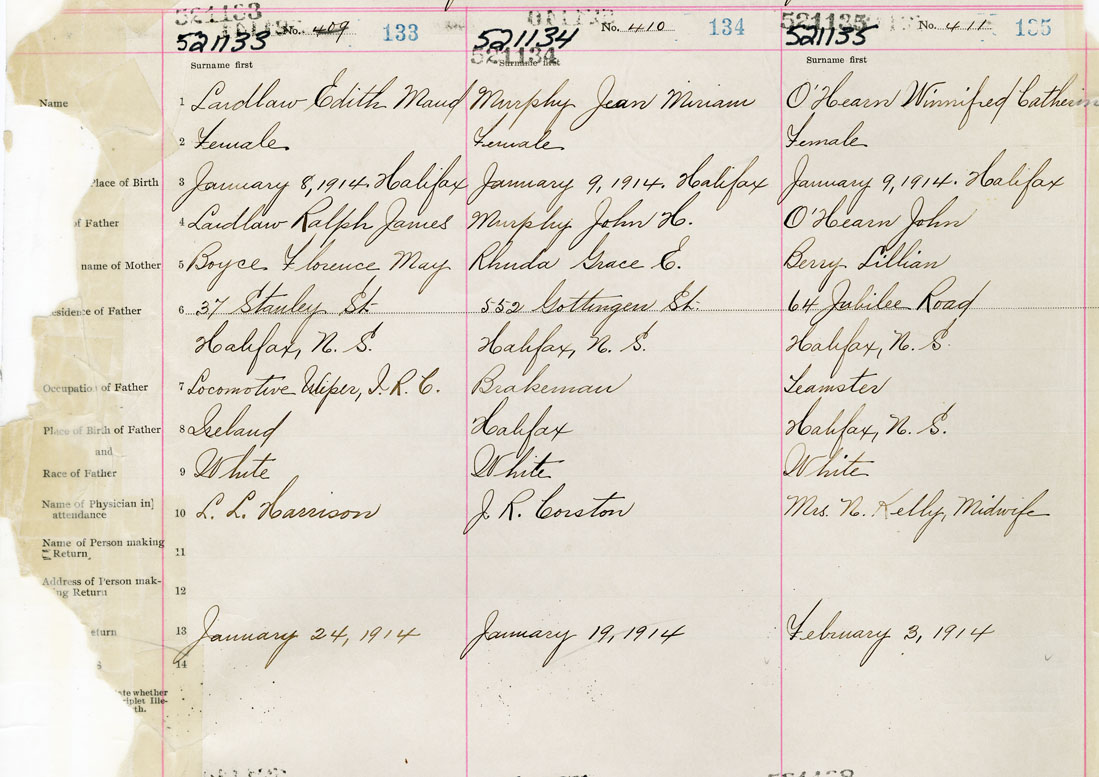 521133 No. 409 133 521134 No. 410 134 521135 No. 411 135
521133 521134 521135
521134
Surname first Surname first Surname first
Name 1 Laidlaw Edith Maud Murphy Jean Miriam O'Hearn Winnifred Catherin
2 Female Female Female
Place of Birth 3 January 8, 1914. Halifax January 9, 1914. Halifax January 9, 1914. Halifax
of Father 4 Laidlaw Ralph James Murphy John H. O'Hearn John
name of Mother 5 Boyce Florence May Rhuda Grace E. Berry Lillian
esidence of Father 6 37 Stanley St. 552 Gottingen St. 64 Jubilee Road
Halifax, N. S. Halifax, N. S. Halifax, N. S.
Occupation of Father 7 Locomotive Wiper, I. R. C. Brakeman Teamster
Place of Birth of Father 8 Ireland Halifax Halifax, N. S.
and
Race of Father 9 White White White
Name of Physician in} 10 L. L. Harrison J. R. Corston Mrs. N. Kelly, Midwife
attendance
Name of Person making 11
Return
Address of Person mak- 12
ing Return
eturn 13 January 24, 1914 January 19, 1914 February 3, 1914
s 14
ate whether
iplet Ille-
th.